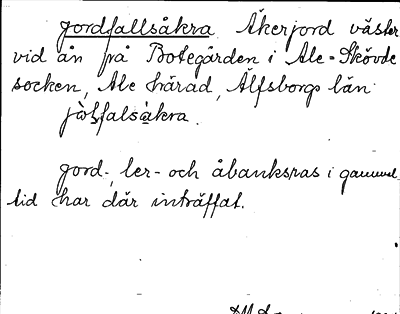 Jordfallsåkra Åkerjord väster
vid ån på Botegården i Ale-Skövde
socken, Ale härad, Älfsborgs län
jòlsfalsàkra.
Jord-, ler- och åbanksras i gammel
tid har där inträffat.